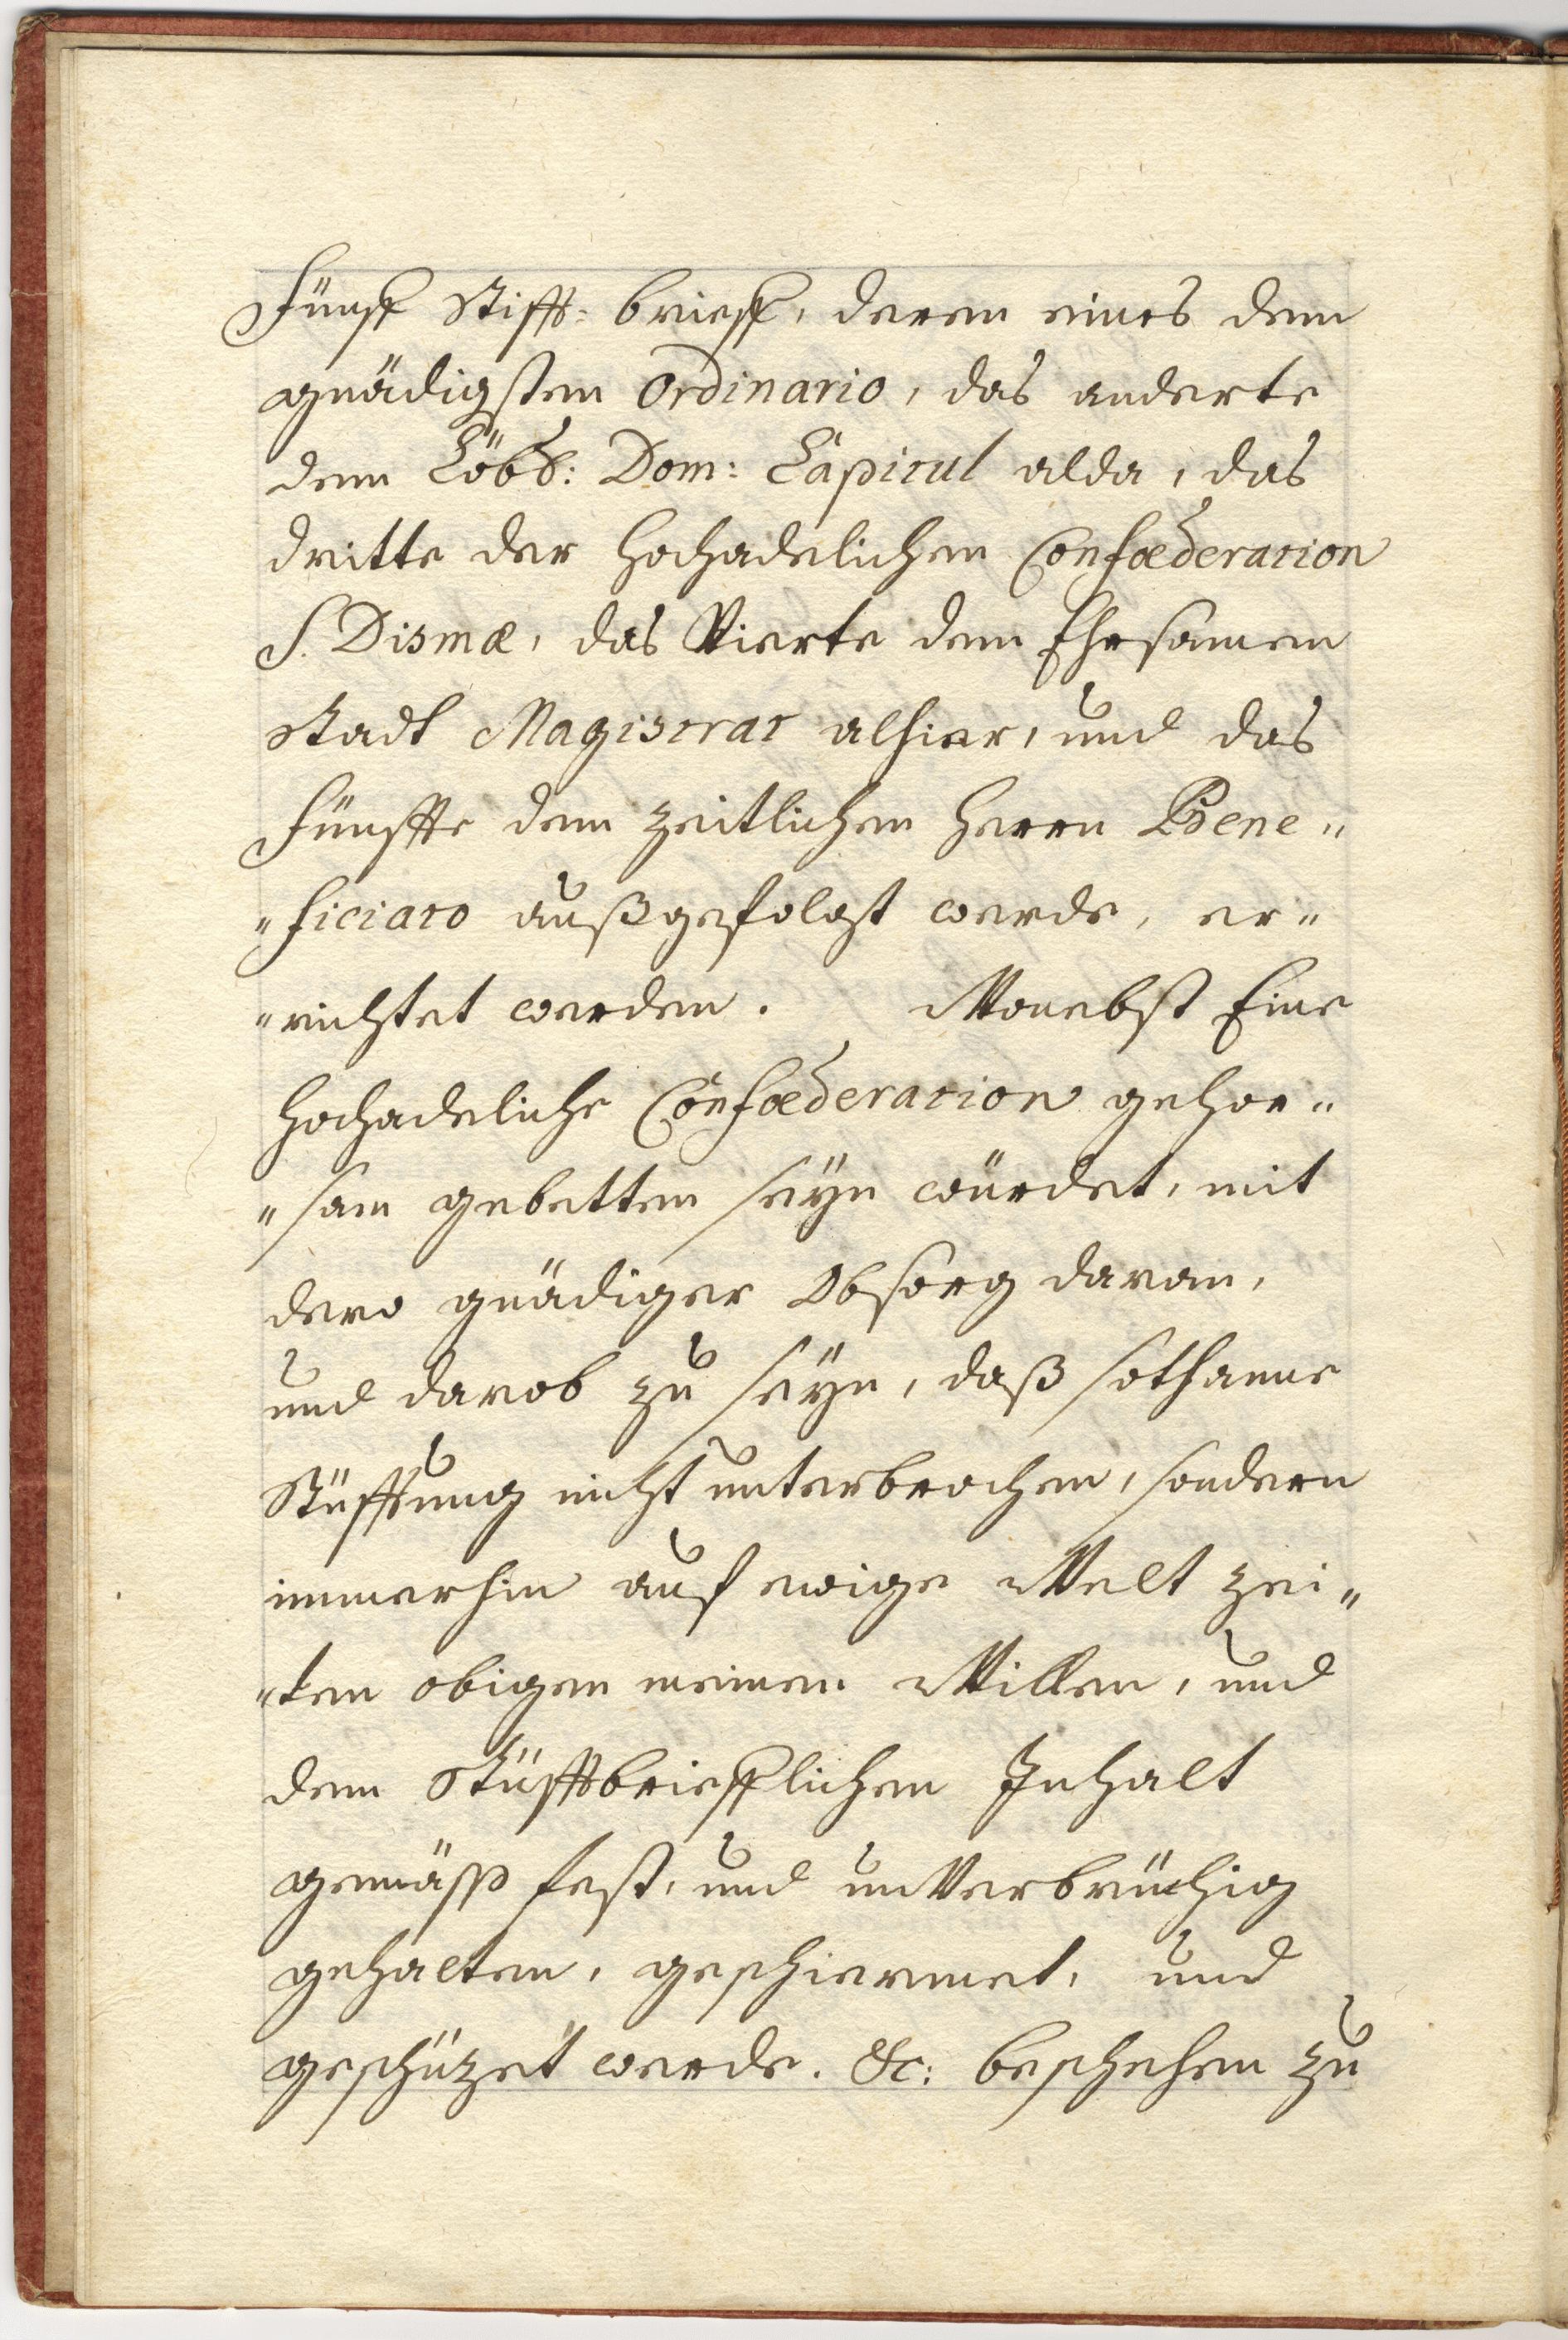 Fünff Stifft: brieff, deren eines dem
gnädigsten Ordinario, das anderte
dem Löbl: Dom: Capitul alda, das
dritte der Hochadelichen Confœderation
S. Dismæ, das Vierte dem Ehrsamen
Stadt Magistrat alhier, und das
Fünffte dem zeitlichen Herrn Bene„
„ficiato außgefolgt werde, er„
„richtet werden. Wonebst Eine
Hochadeliche Confœderation gehor„
„sam gebetten seÿn würdet, mit
dero gnädiger Obsorg daran,
und darob zu seÿn, daß sothanne
Stüfftung nicht unterbrochen, sondern
immerhin auf ewige Welt zei„
„ten obigen meinen Willen, und
dem Stüfftbriefflichen Inhalt
gemäss fest, und unVerbrüchig
gehalten, geschiermet, und
geschüzet werde. &c: beschehen zu